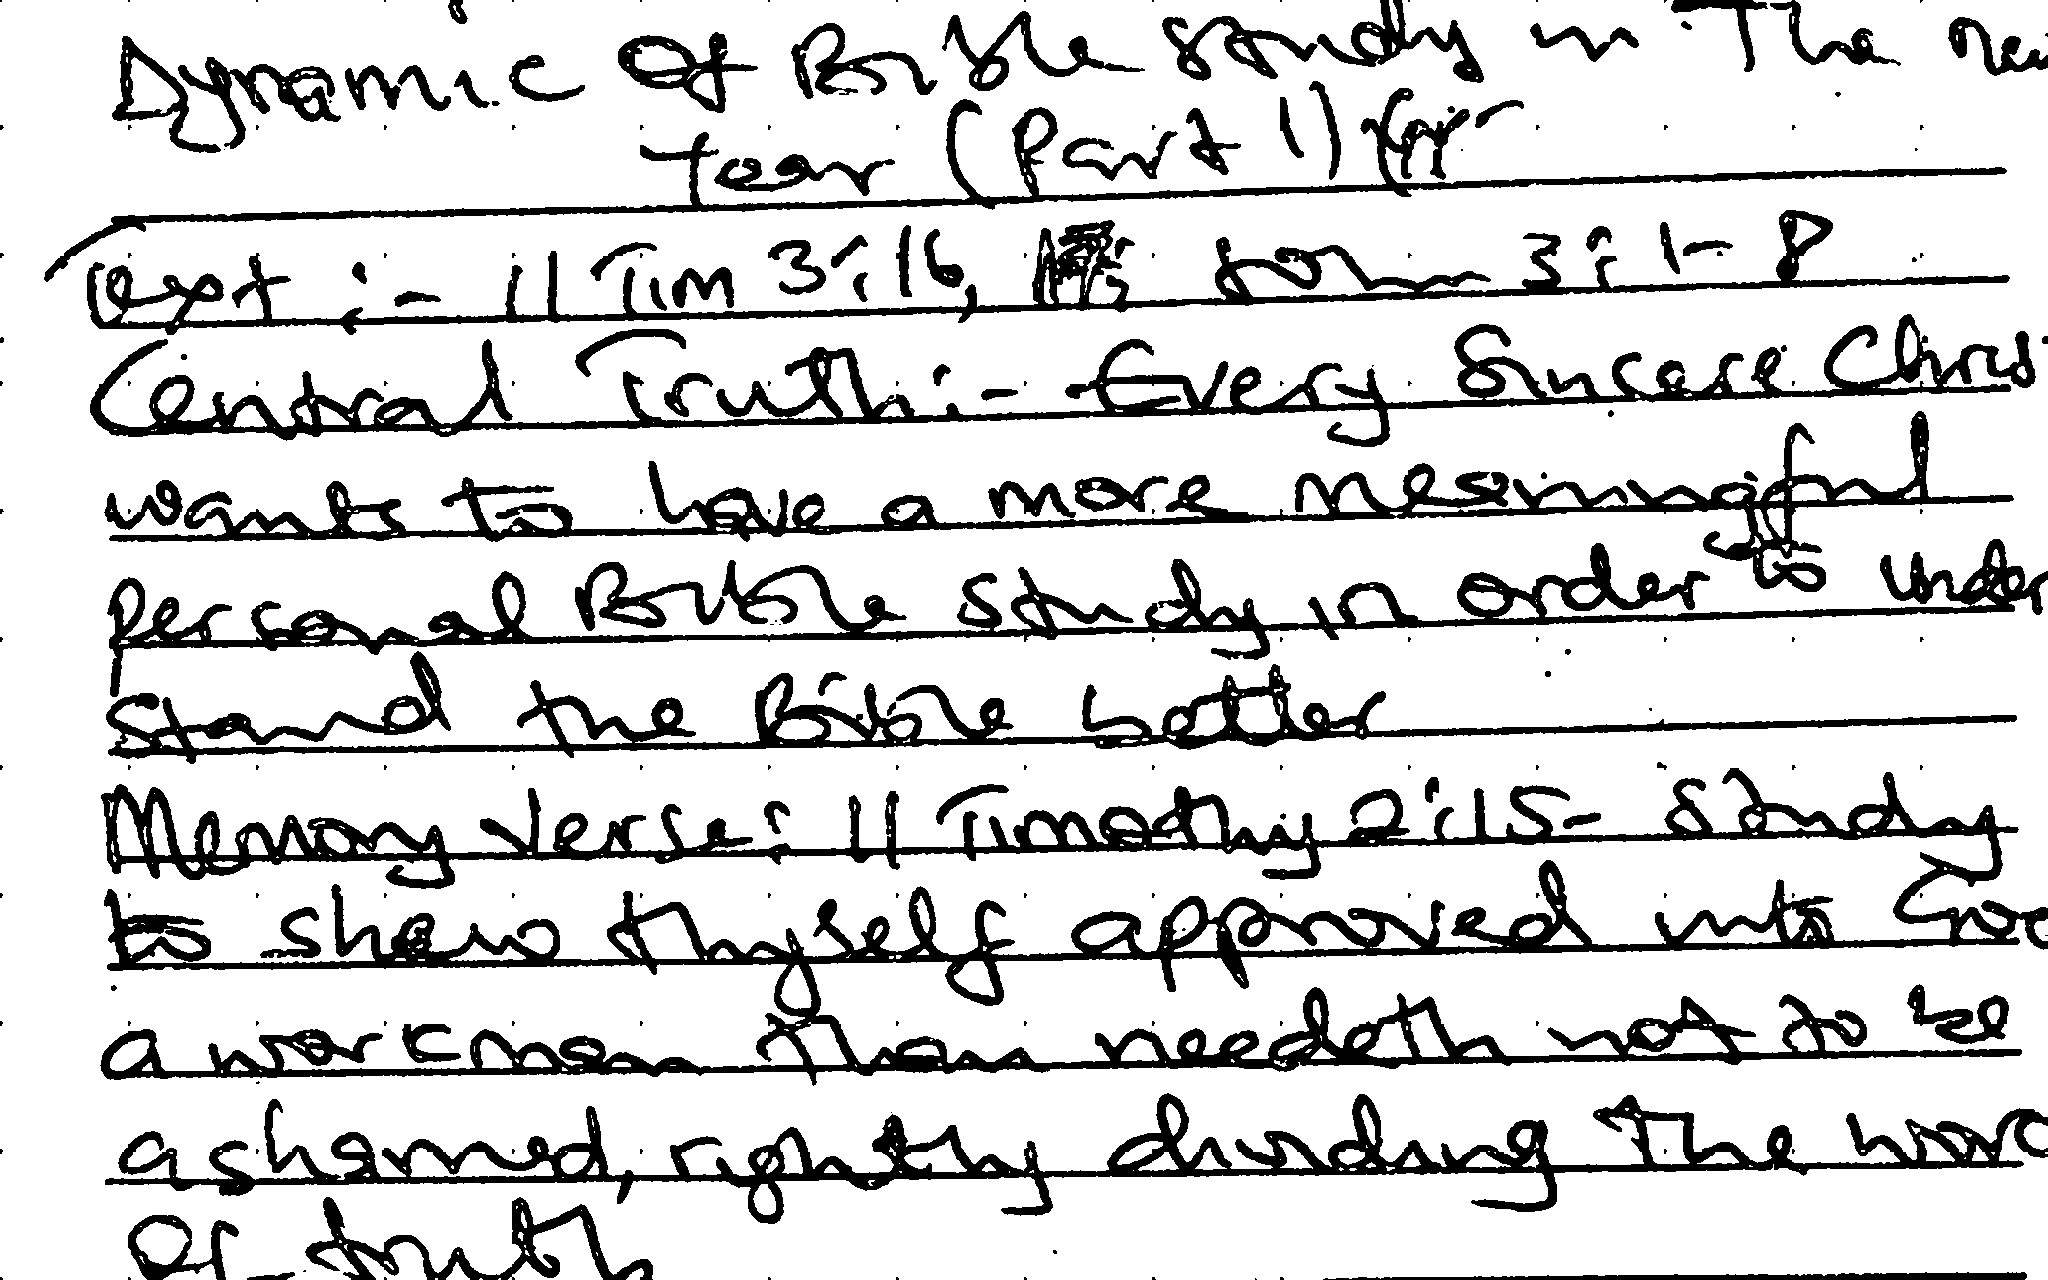 Dynamic Of Bible Study in The new
Year (Part 1)
Text :- 11 Tim 3:16, John 3:1-8
Central Truth :- Every Sincere Chris
wants to have a more meaningful
Personal Bible study in order to under
stand the Bible better
Memory verse: 11 Timothy 2:15 - Study
to shew thyself approved unto God
a workman than needeth not to be
ashamed, rightly dividing The word
Of truth